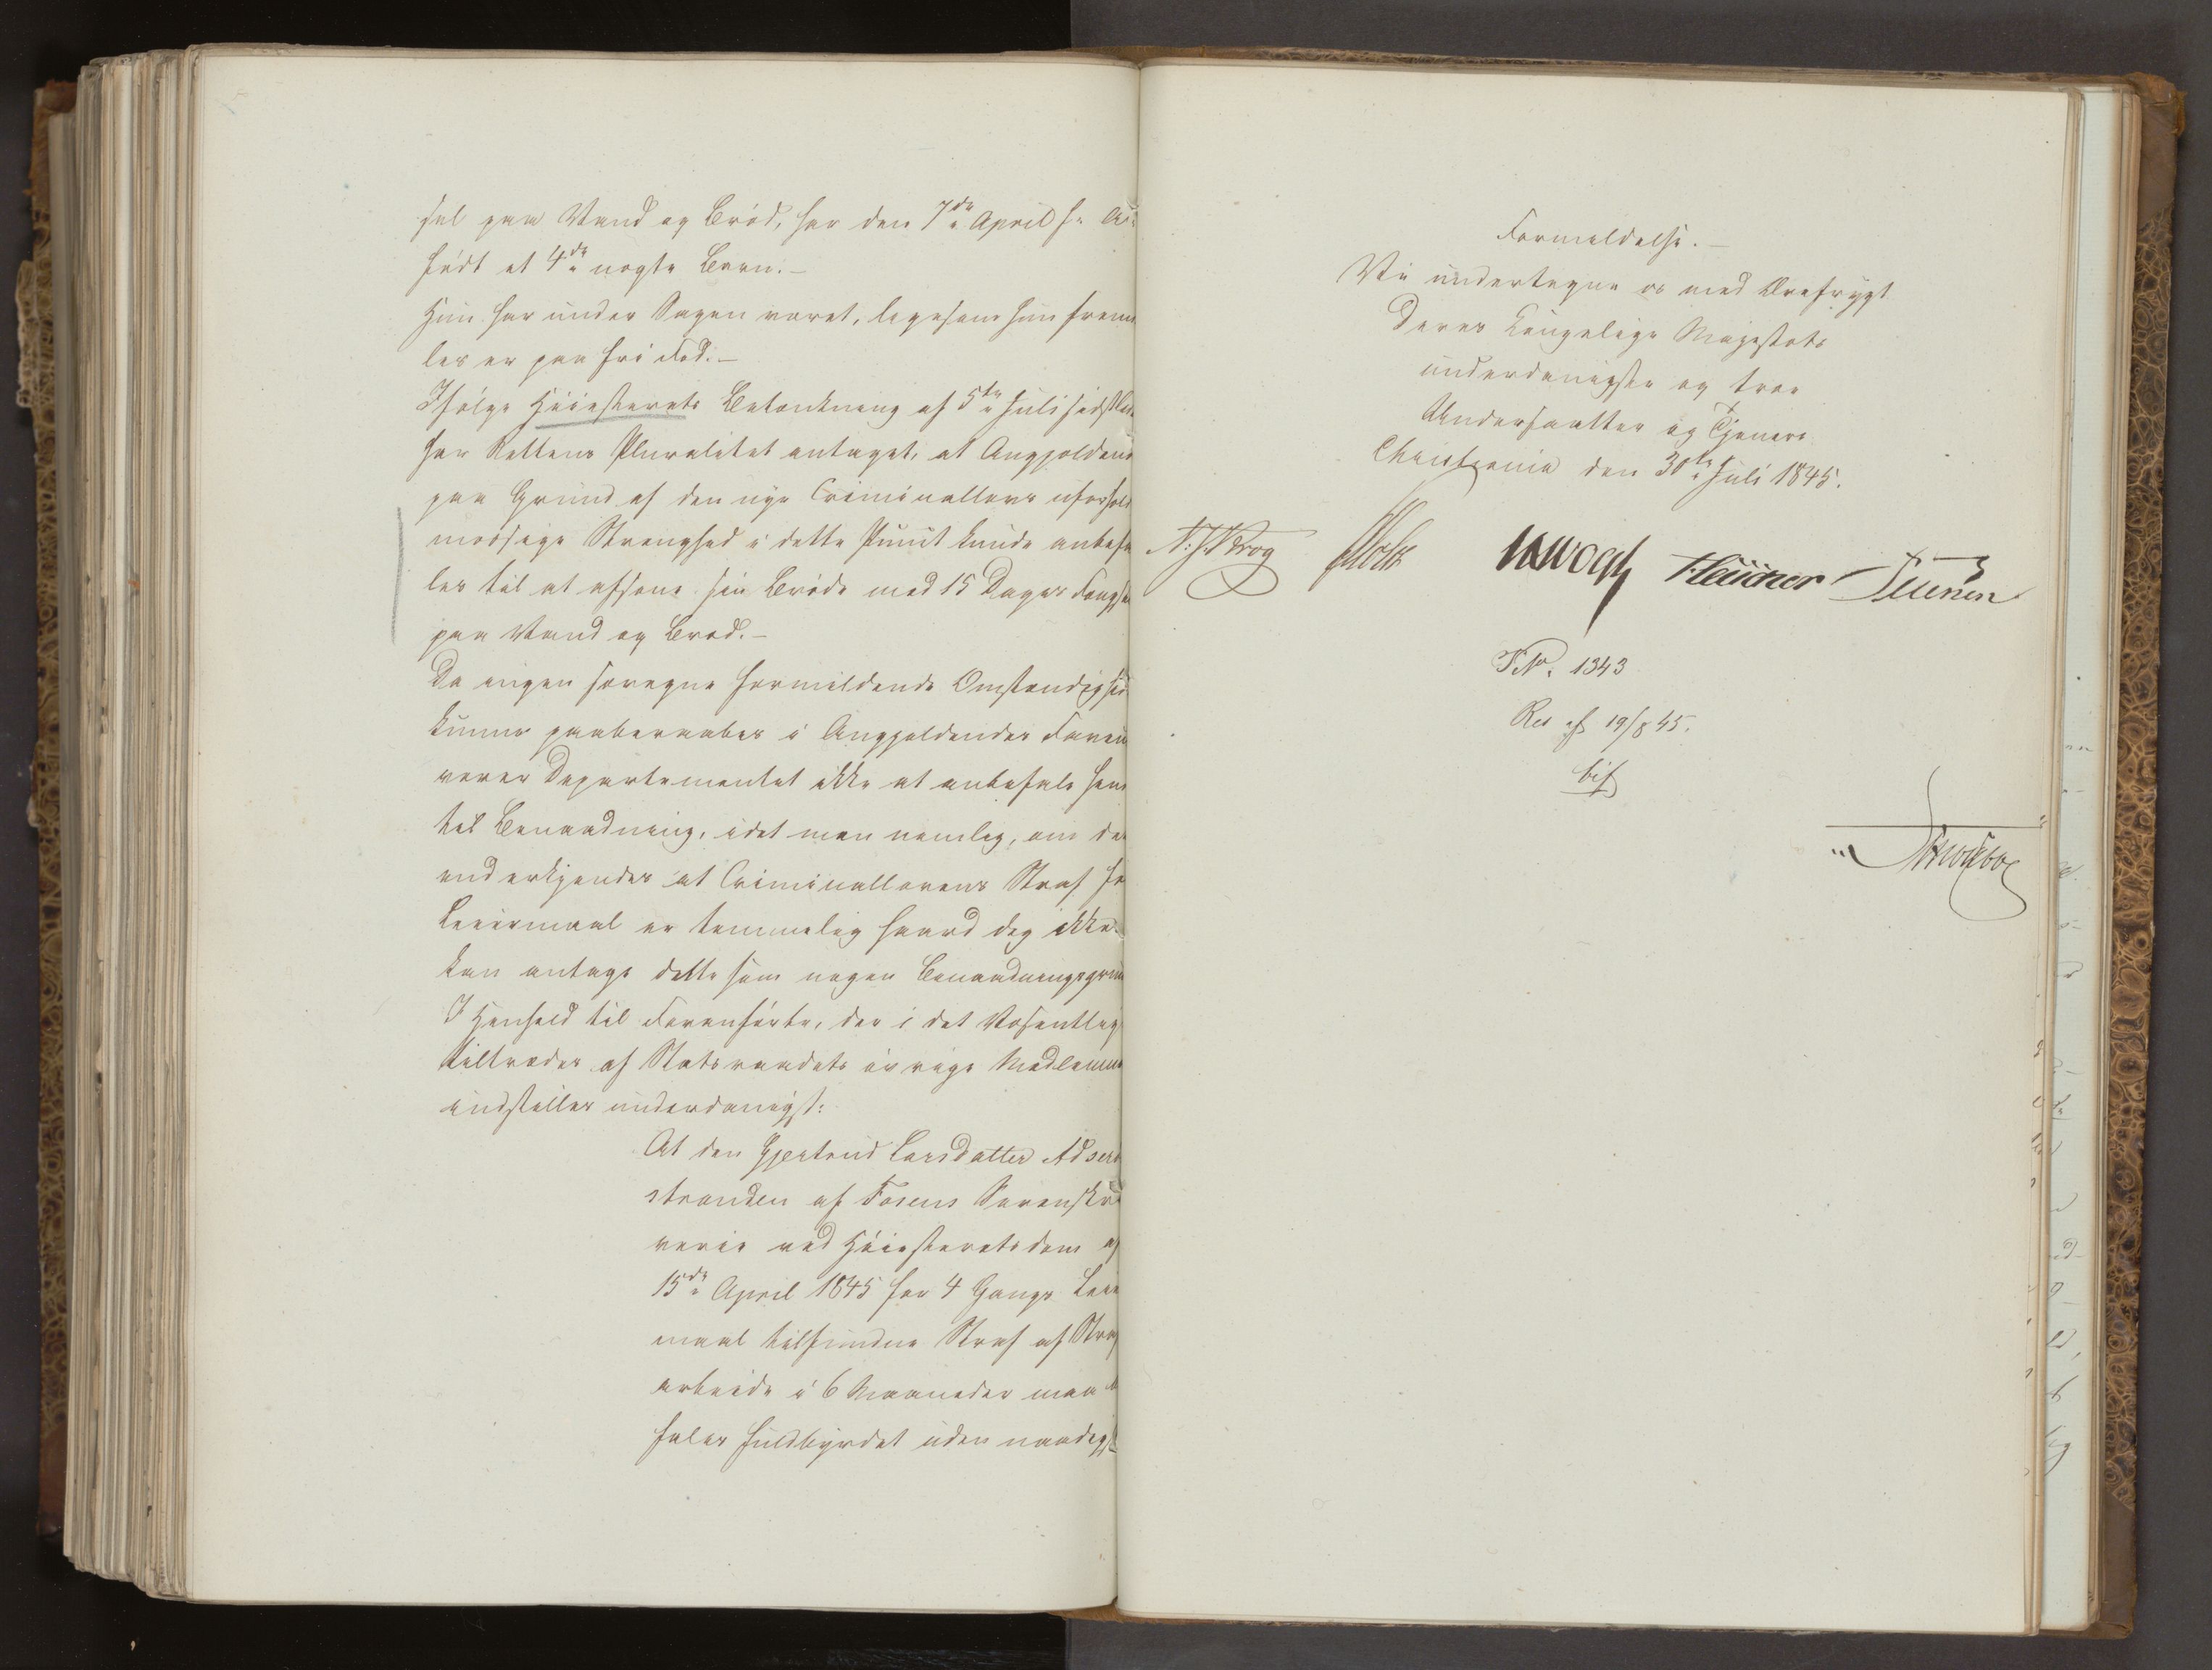 sel paa Vand og Bröd, har den 7de April f. A.
födt et 4de uægte Barn.-
Hun har under Sagen været, ligesom hun frem
les er paa fri Fod.-
Ifölge Höiesterets Betænkning af 5te Juli sidstl
har Rettens Pluralitet antaget, at Angjældend
paa Grund af den nye Criminallovs uforhold
mæssige Strenghed i dette Punct kunde anbefa
les til at afsone sin Bröde med 15 Dages Fængse
paa Vand og Bröd.-
Da ingen særegne formildende Omstændighed
kunne paaberaabes i Angjældendes Faveu
vover Departementet ikke at anbefale hen
til Benaadning, idet man nemlig, om det
end erkjendes at Criminallovens Straf fo
Leiermaal er temmelig haard dog ikke
kan antage dette som nogen Benaadningsgrun
I Henhold til Foranförte, der i det Væsentlig
tiltrædes af Statsraadets övrige Medlemme
indstilles underdanigst:
At den Gjertrud Larsdatter Adser
stranden af Fosens Sorenskri
verie ved Höiesteretsdom af
15de April 1845 for 4 Gangs Leier
maal tilfundne Straf af Straf
arbeide i 6 Maaneder maa be
fales fuldbyrdet uden naadigst
Formildelse.-
Vi undertegne os med Ærefrygt
Deres Kongelige Majestæts
underdanigste og troe
Undersaatter og Tjenere.
Christiania den 30te Juli 1845.
N. J. Krog Vogt
P.No. 1343
Res af 19/8 45.
bif